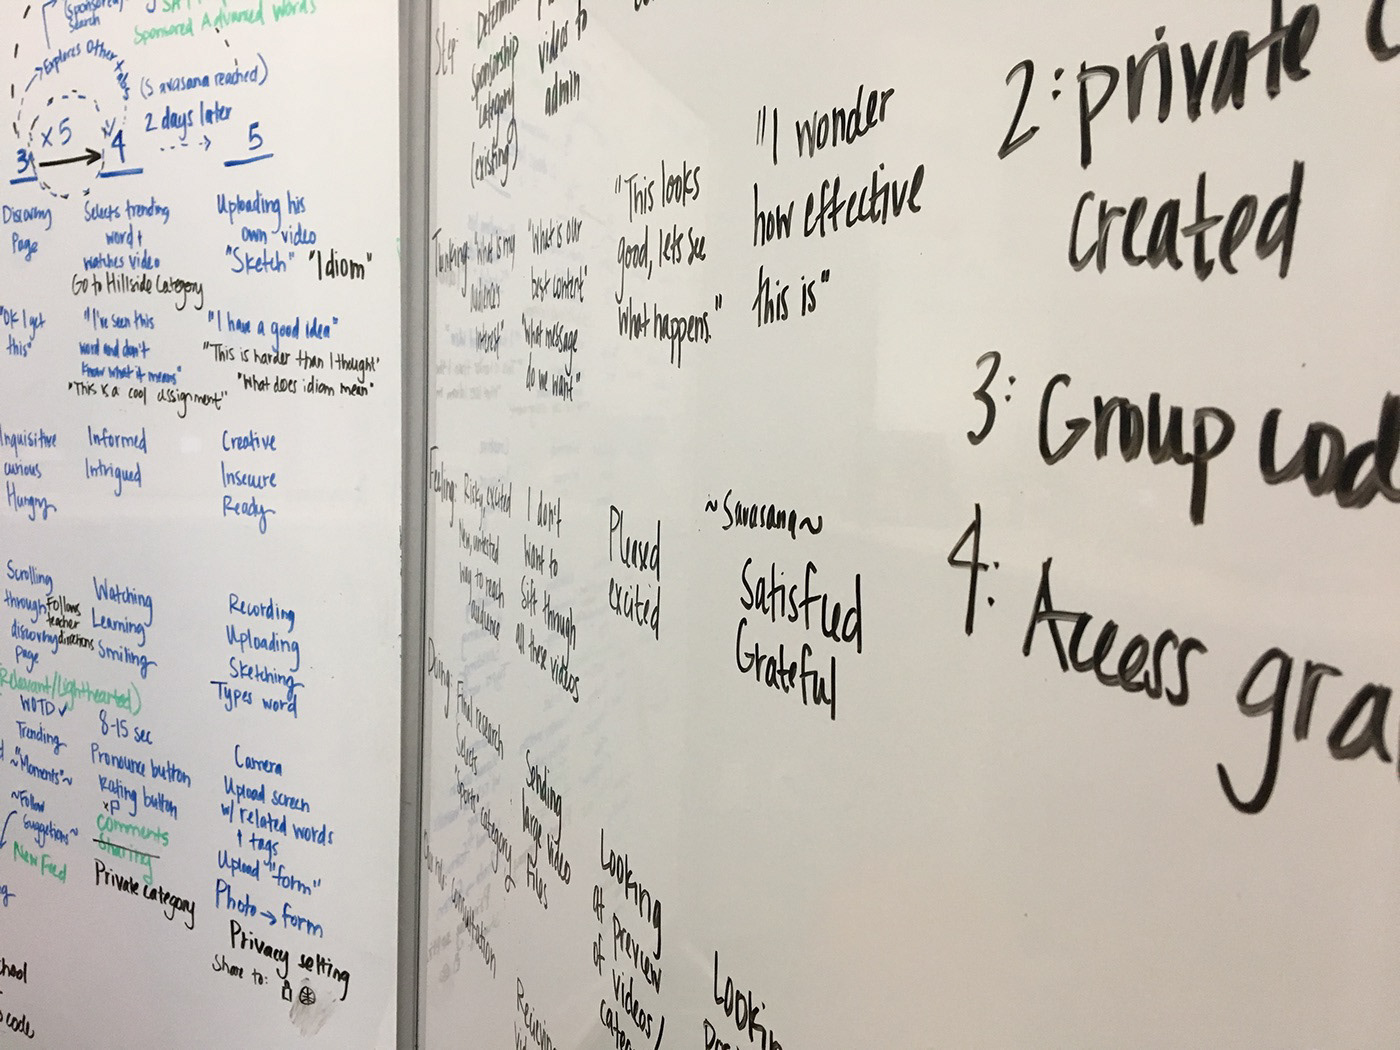 (Sponsored)
Search
Sponsored Advanced Words
Explores Other
(Savasana reached)
x 5
2 days later
3
4
5
Discovery
Page
Selects trending
word +
watches video
Go to Hillside Category
Uploading his
own video
"Sketch" "Idiom"
"OK I get
this"
"I've seen this
word and don't
know what it means"
"This is a cool assignment"
"I have a good idea"
"This is harder than I thought"
"What does idiom mean"
Inquisitive
curious
Hungry
Informed
Intrigued
Creative
Insecure
Ready
Scrolling
through
discovery
page
Follows
teacher
directions
Watching
Learning
Smiling
Recording
Uploading
Sketching
Types word
Relevant/Lighthearted)
WOTD ✓
Trending
~"Moments"~
~Follow
Suggestions~
New Feed
8-15 sec
Pronounce button
Rating button
xP
Comments
Sharing
Private category
Camera
Upload screen
w/ related words
+ tags
Upload "form"
Photo → form
Privacy setting
Share to:
code
Step:
Sponsorship
category
(existing)
videos to
admin
Thinking:
"What is my
audience's
interest"
"What is our
best content"
"What message
do we want"
"This looks
good, lets see
what happens."
"I wonder
how effective
this is"
Feeling:
Risky, excited
New, untested
way to reach
audience
I don't
want to
sift through
all these videos
Pleased
excited
~Savasana~
Satisfied
Grateful
Doing:
Final research
Selects
"Sports" category
consultation
Sending
large video
files
Looking
at preview
of videos/
2: private
created
3: Group
4: Access